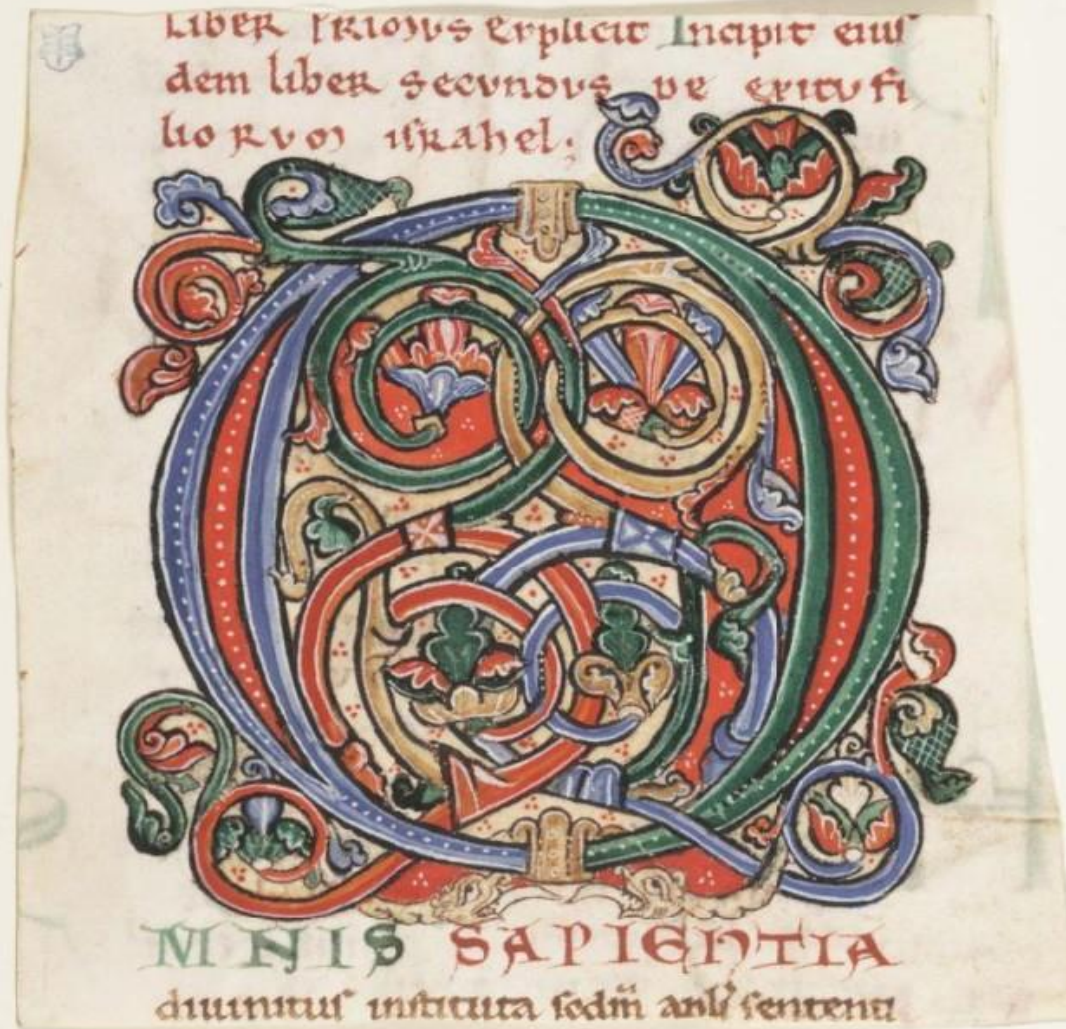 LIBER PRIMVS explicit Incipit eius
dem liber secundus de exitu fi
liorum israhel;
O
MNIS SAPIENTIA
diuinitus instituta sodm̄ ansł sententi